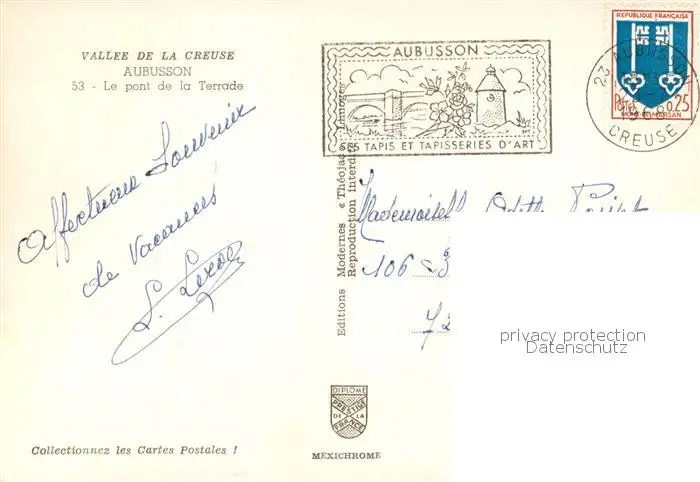 VALLEE DE LA CREUSE
AUBUSSON
53 - Le pont de la Terrade
Affectueux Souvenir
de Vacances
AUBUSSON
SES TAPIS ET TAPISSERIES D'ART
REPUBLIQUE FRANÇAISE
POSTES 0,25
MONT-DE-MARSAN
CREUSE
Editions Modernes « Théojac » Limoges
Reproduction interdite
Mademoiselle Odette
106
privacy protection
Datenschutz
DIPLOME
PRESTIGE
DE LA
FRANCE
Collectionnez les Cartes Postales !
MEXICHROME